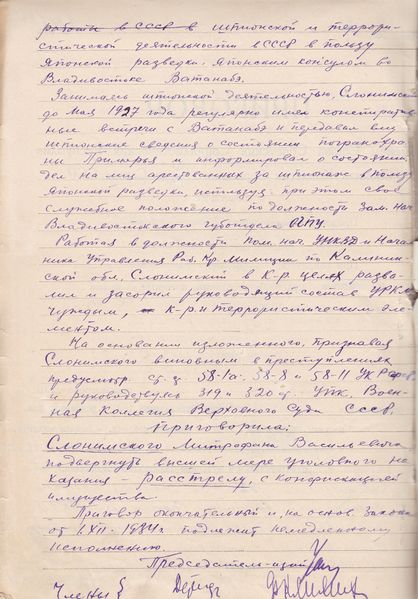 работы в СССР в шпионской и террори-
стической деятельности в СССР в пользу
Японской разведки. Японским консулом во
Владивостоке Ватанабэ.
Занимаясь шпионской деятельностью, Слонимский
до мая 1927 года регулярно имел конспиратив-
ные встречи с Ватанабэ и передавал ему
шпионские сведения о состоянии погранохра-
ны Приморья и информировал о состоянии
дел на лиц арестованных за шпионаж в пользу
Японской разведки, используя при этом свое
служебное положение по должности Зам. нач.
Владивостокского губотдела ОГПУ.
Работая в должности Пом. нач. УНКВД и Нача-
ника Управления Раб. Кр. Милиции по Калинин-
ской обл. Слонимский в к-р целях разва-
лил и засорил руководящий состав УРКМ
чуждым, к-р и террористическим эле-
ментом.
На основании изложенного, признавая
Слонимского виновным в преступлениях
предусмотр. ст. ст. 58-1а, 58-8 и 58-11 УК РСФСР
и руководствуясь 319 и 320 ст. УПК, Воен-
ная Коллегия Верховного Суда СССР
Приговорила:
Слонимского Митрофана Васильевича
подвергнуть высшей мере уголовного на-
казания - расстрелу, с конфискацией
имущества.
Приговор окончательный и, на основ. закона
от 1.XII-1934г. подлежит немедленному
исполнению.
Председательствующий
Члены